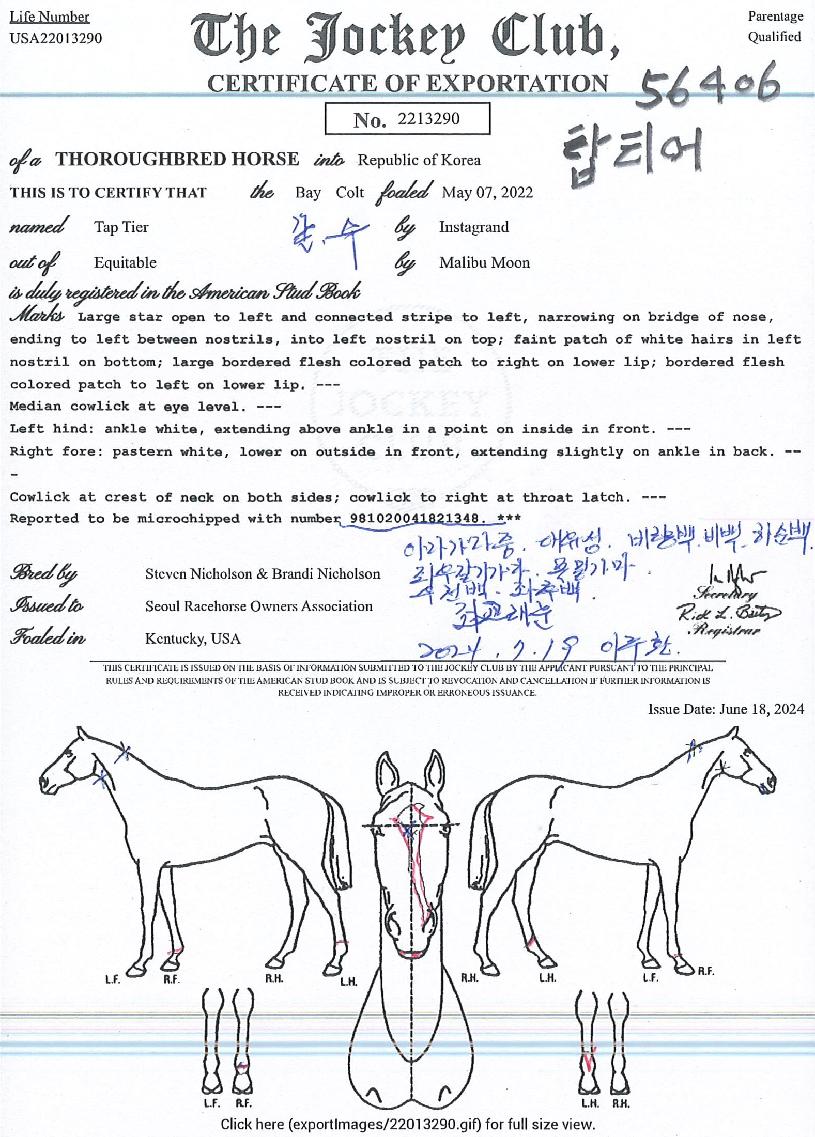 Life Number
USA22013290
The Jockey Club,
Parentage
Qualified
CERTIFICATE OF EXPORTATION
56406
No. 2213290
탑티어
of a THOROUGHBRED HORSE into Republic of Korea
THIS IS TO CERTIFY THAT the Bay Colt foaled May 07, 2022
named Tap Tier
갈.수
by Instagrand
out of Equitable by Malibu Moon
is duly registered in the American Stud Book
Marks Large star open to left and connected stripe to left, narrowing on bridge of nose,
ending to left between nostrils, into left nostril on top; faint patch of white hairs in left
nostril on bottom; large bordered flesh colored patch to right on lower lip; bordered flesh
colored patch to left on lower lip. ---
Median cowlick at eye level. ---
Left hind: ankle white, extending above ankle in a point on inside in front. ---
Right fore: pastern white, lower on outside in front, extending slightly on ankle in back. --
-
Cowlick at crest of neck on both sides; cowlick to right at throat latch. ---
Reported to be microchipped with number 981020041821348. ***
JOCKEY
Bred by Steven Nicholson & Brandi Nicholson
Issued to Seoul Racehorse Owners Association
Foaled in Kentucky, USA
2024.7.19 이주환.
Secretary
Registrar
THIS CERTIFICATE IS ISSUED ON THE BASIS OF INFORMATION SUBMITTED TO THE JOCKEY CLUB BY THE APPLICANT PURSUANT TO THE PRINCIPAL
RULES AND REQUIREMENTS OF THE AMERICAN STUD BOOK AND IS SUBJECT TO REVOCATION AND CANCELLATION IF FURTHER INFORMATION IS
RECEIVED INDICATING IMPROPER OR ERRONEOUS ISSUANCE.
Issue Date: June 18, 2024
L.F. R.F. R.H. L.H. R.H. L.H. L.F. R.F.
L.F. R.F. L.H. R.H.
Click here (exportImages/22013290.gif) for full size view.